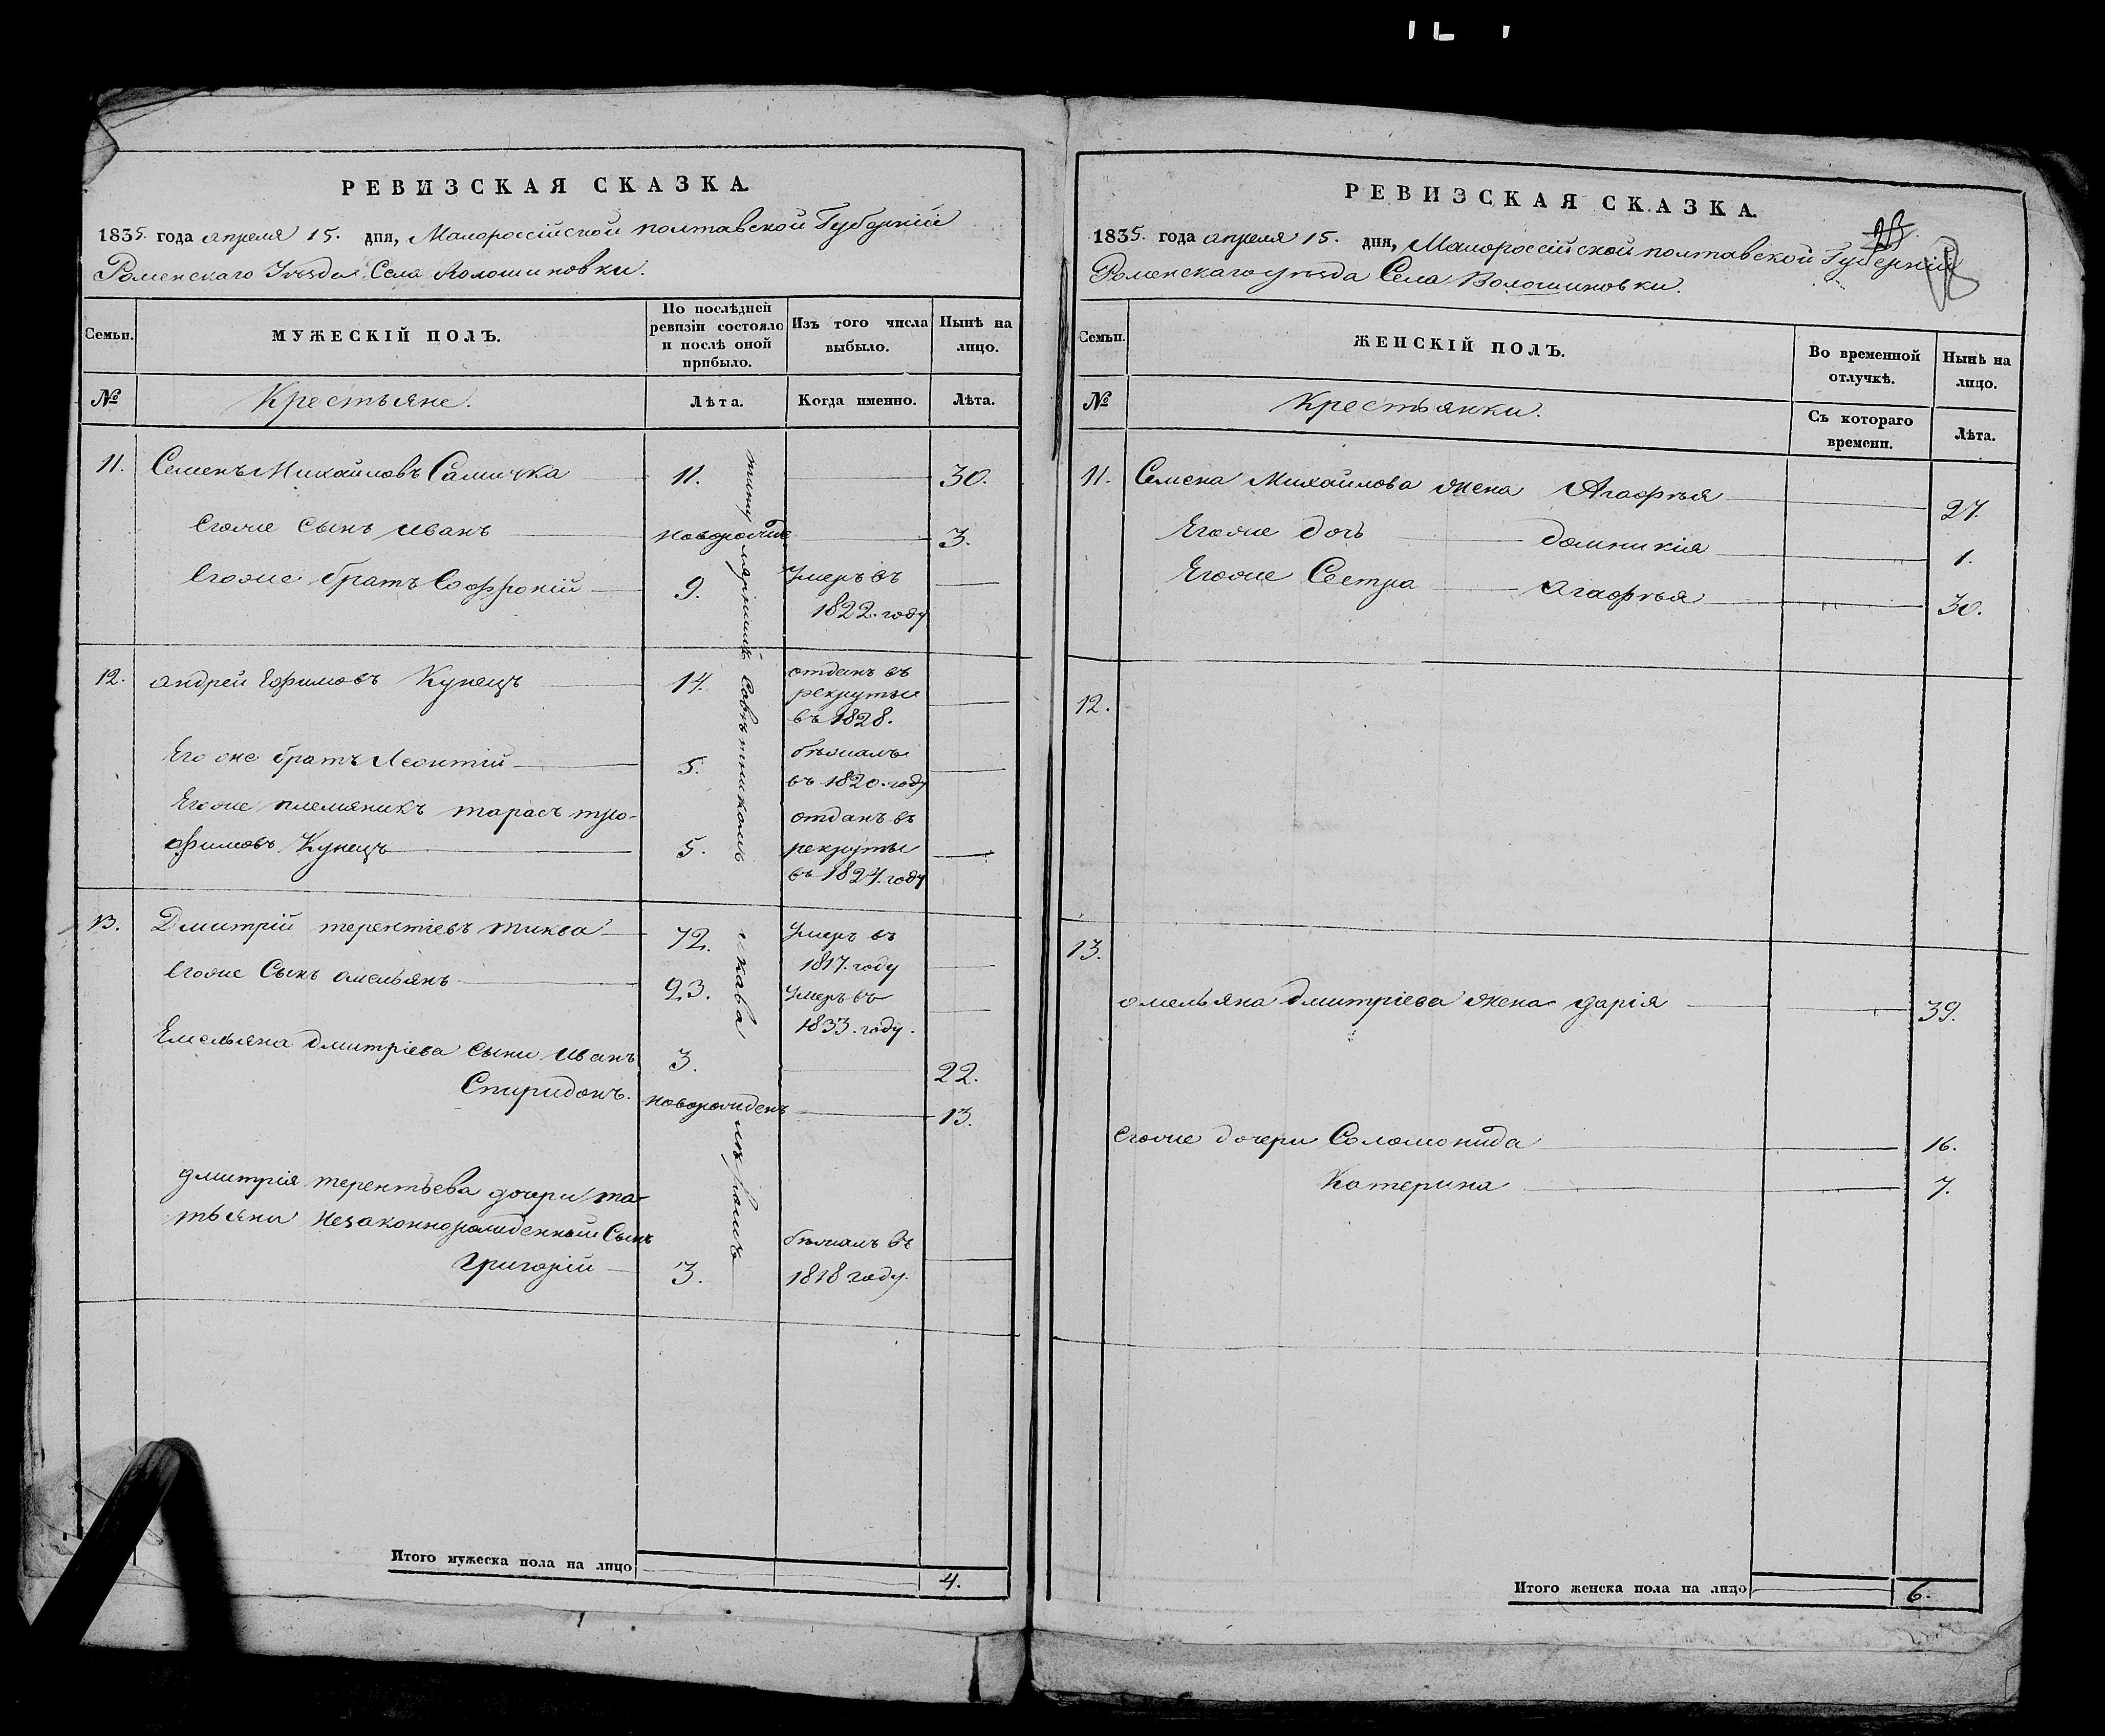 РЕВИЗСКАЯ СКАЗКА.
1835. года апреля 15. дня, Малороссійской полтавской Губерніи
Роменскаго Уезда Села Волошиновки.
Семьи.
МУЖЕСКІЙ ПОЛЪ.
По послѣдней ревизіи состояло и послѣ оной прибыло.
Изъ того числа выбыло.
Нынѣ на лицо.
№
Крестьяне.
Лѣта.
Когда именно.
Лѣта.
11. Семенъ Михайловъ Самичка 11. 30.
Егоже Сынъ Иванъ новорожде 3.
Егоже братъ Софроній 9. Умеръ въ
1822. году
12. андрей Ефимовъ Кунецъ 14. отданъ въ
рекруты
въ 1828.
Его же братъ Леонтій 5. бѣжалъ
въ 1820. году
Егоже племяникъ тарасъ тро-
фимовъ Кунецъ 5. отданъ въ
рекруты
въ 1824. году
13. Дмитрій терентіевъ тиква 72. Умеръ въ
1817. году
Егоже Сынъ омельянъ 23. Умеръ въ
1833. году.
Емельяна дмитріева сыни Иванъ 3. 22.
Спиридонъ. новорожденъ 13.
дмитрія терентьева дочери та-
тьяни незаконнорожденный Сынъ
Григорій 3. бѣжалъ въ
1818 году.
Итого мужеска пола на лицо 4.
РЕВИЗСКАЯ СКАЗКА.
1835. года апреля 15. дня, Малороссійской полтавской Губерніи
Роменскаго уезда Села Волошиновки.
Семьи.
ЖЕНСКІЙ ПОЛЪ.
Во временной отлучкѣ.
Нынѣ на лицо.
№
Крестьянки.
Съ котораго времени.
Лѣта.
11. Семена Михайлова жена Агафья 27.
Егоже дочь домникія 1.
Егоже Сестра агафья 30.
12.
13.
омельяна дмитріева жена дарія 39.
Егоже дочери Соломонида 16.
Катерина 7.
Итого женска пола на лицо 6.